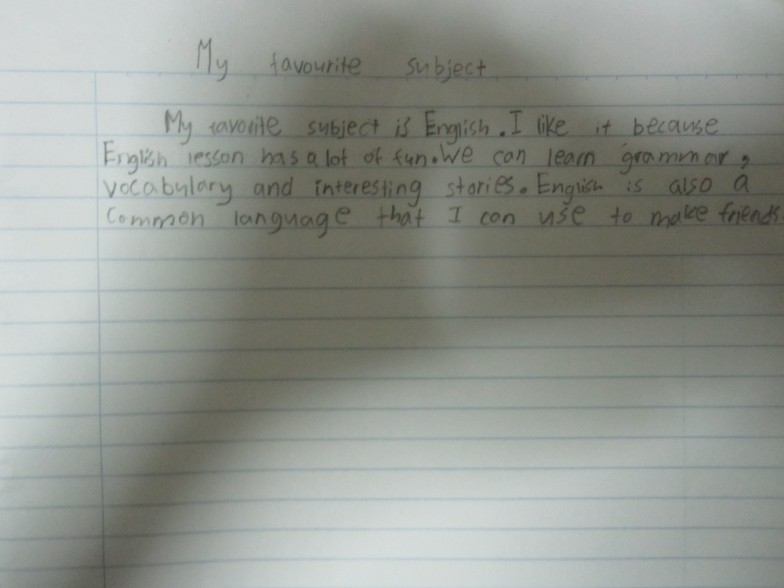 My favourite subject
My favorite subject is English. I like it because
English lesson has a lot of fun. We can learn grammar,
vocabulary and interesting stories. English is also a
common language that I can use to make friends.